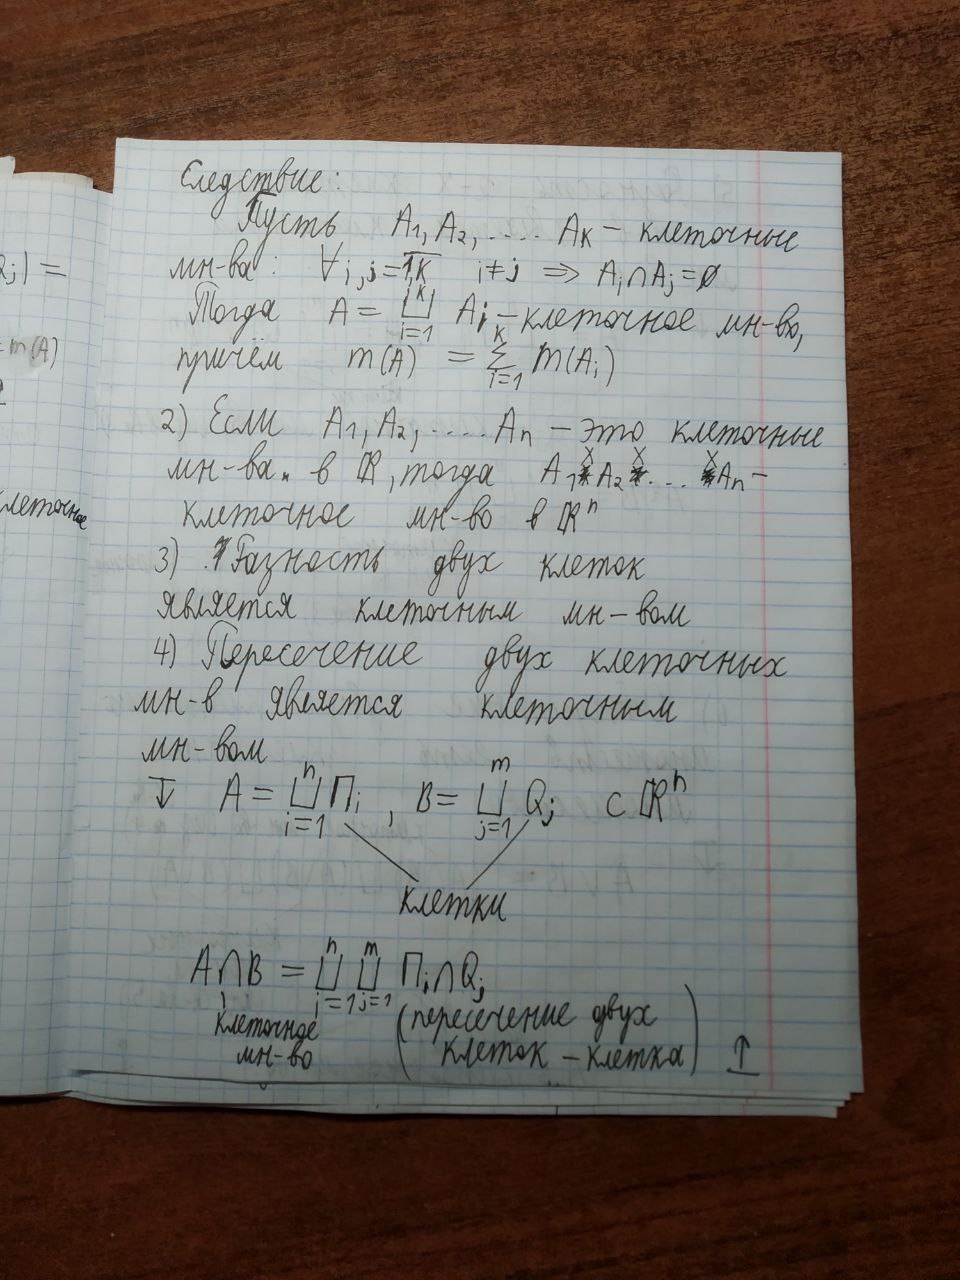 Следствие:
Пусть A₁, A₂, .... Aк – клеточные
мн-ва: ∀i,j=1,k i≠j ⇒ Aᵢ∩Aⱼ=∅
Тогда A = ⊔ᵢ₌₁ᵏ Aᵢ – клеточное мн-во,
причём m(A) = Σᵢ₌₁ᵏ m(Aᵢ)
2) Если A₁, A₂, .... Aₙ – это клеточные
мн-ва в ℝ, тогда A₁×A₂×...×Aₙ –
клеточное мн-во в ℝⁿ
3) Разность двух клеток
является клеточным мн-вом
4) Пересечение двух клеточных
мн-в является клеточным
мн-вом
↧ A = ⊔ᵢ₌₁ⁿ Πᵢ, B = ⊔ⱼ₌₁ᵐ Qⱼ ⊂ ℝⁿ
клетки
A∩B = ⊔ᵢ₌₁ⁿ ⊔ⱼ₌₁ᵐ Πᵢ∩Qⱼ
клеточное (пересечение двух
мн-во клеток – клетка) ↥
= m(A)
клеточное